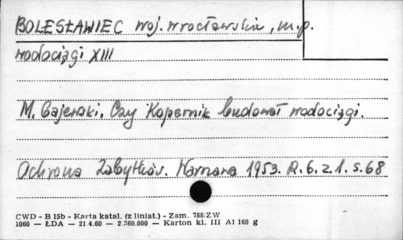 BOLESŁAWIEC woj. wrocławskie, m.p.
wodociągi XIII
M. Gajewski, Czy Kopernik budował wodociągi.
Ochrona Zabytków. Warszawa 1953. R.6. z.1. s.68
CWD - B 15b - Karta katal. (z liniat.) - Zam. 788/ZW
1060 — ŁDA — 21 4.60 — 2.360.000 — Karton kl. III A1 160 g